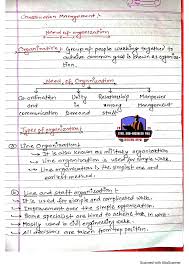 Construction Management :-
Need of organization
Organization :- Group of people working together to
achieve common goal is known as organiza-
tion.
Need of Organization
Co-ordination Unity Relationship Manpower
and in among Management
communication Demand Staffs
Types of organization :-
① Line Organization :-
→ It is also known as military organization
→ Line organization is used for simple work.
→ Line organization is the simplest one and
earliest method.
② Line and staff organization :-
→ It is used for simple and complicated work.
→ Improvement over line organization
→ Some specialist are hired to achieve task in work.
→ Mostly used in civil engineering work.
→ All decisions are taken from top position.
Scanned with CamScanner